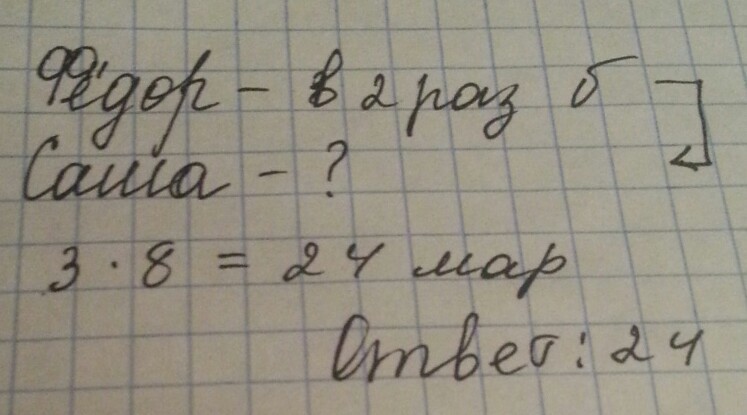 Фёдор - в 2 раз б
Саша - ?
3 · 8 = 24 мар
Ответ: 24